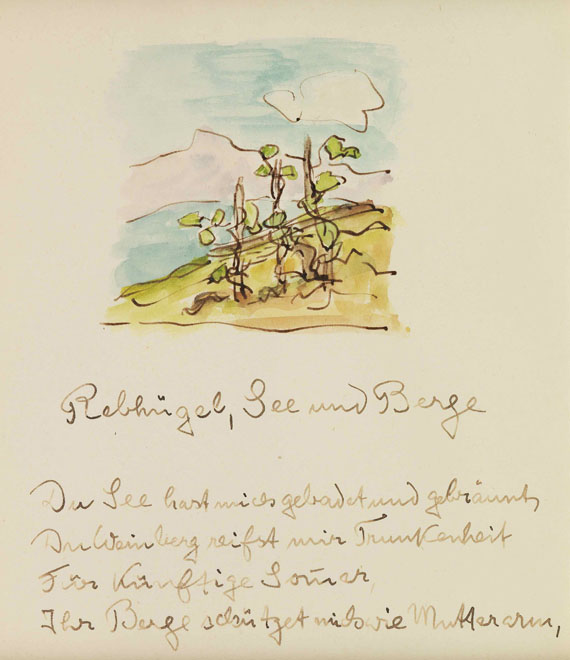 Rebhügel, See und Berge
Du See hast mich gebadet und gebräunt,
Du Weinberg reifst mir Trunkenheit
Für künftige Som̄er,
Ihr Berge schützet mich wie Mutterarm,